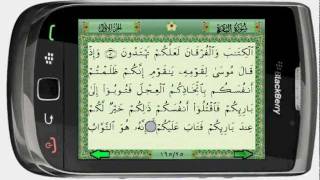 سُورَةُ البَقَرَة
الجُزْءُ الأَوَّلُ
ٱلْكِتَٰبَ وَٱلْفُرْقَانَ لَعَلَّكُمْ تَهْتَدُونَ ٥٣ وَإِذْ
قَالَ مُوسَىٰ لِقَوْمِهِۦ يَٰقَوْمِ إِنَّكُمْ ظَلَمْتُمْ
أَنفُسَكُم بِٱتِّخَاذِكُمُ ٱلْعِجْلَ فَتُوبُوٓا۟ إِلَىٰ
بَارِئِكُمْ فَٱقْتُلُوٓا۟ أَنفُسَكُمْ ذَٰلِكُمْ خَيْرٌ لَّكُمْ
عِندَ بَارِئِكُمْ فَتَابَ عَلَيْكُمْ إِنَّهُۥ هُوَ ٱلتَّوَّابُ
BlackBerry